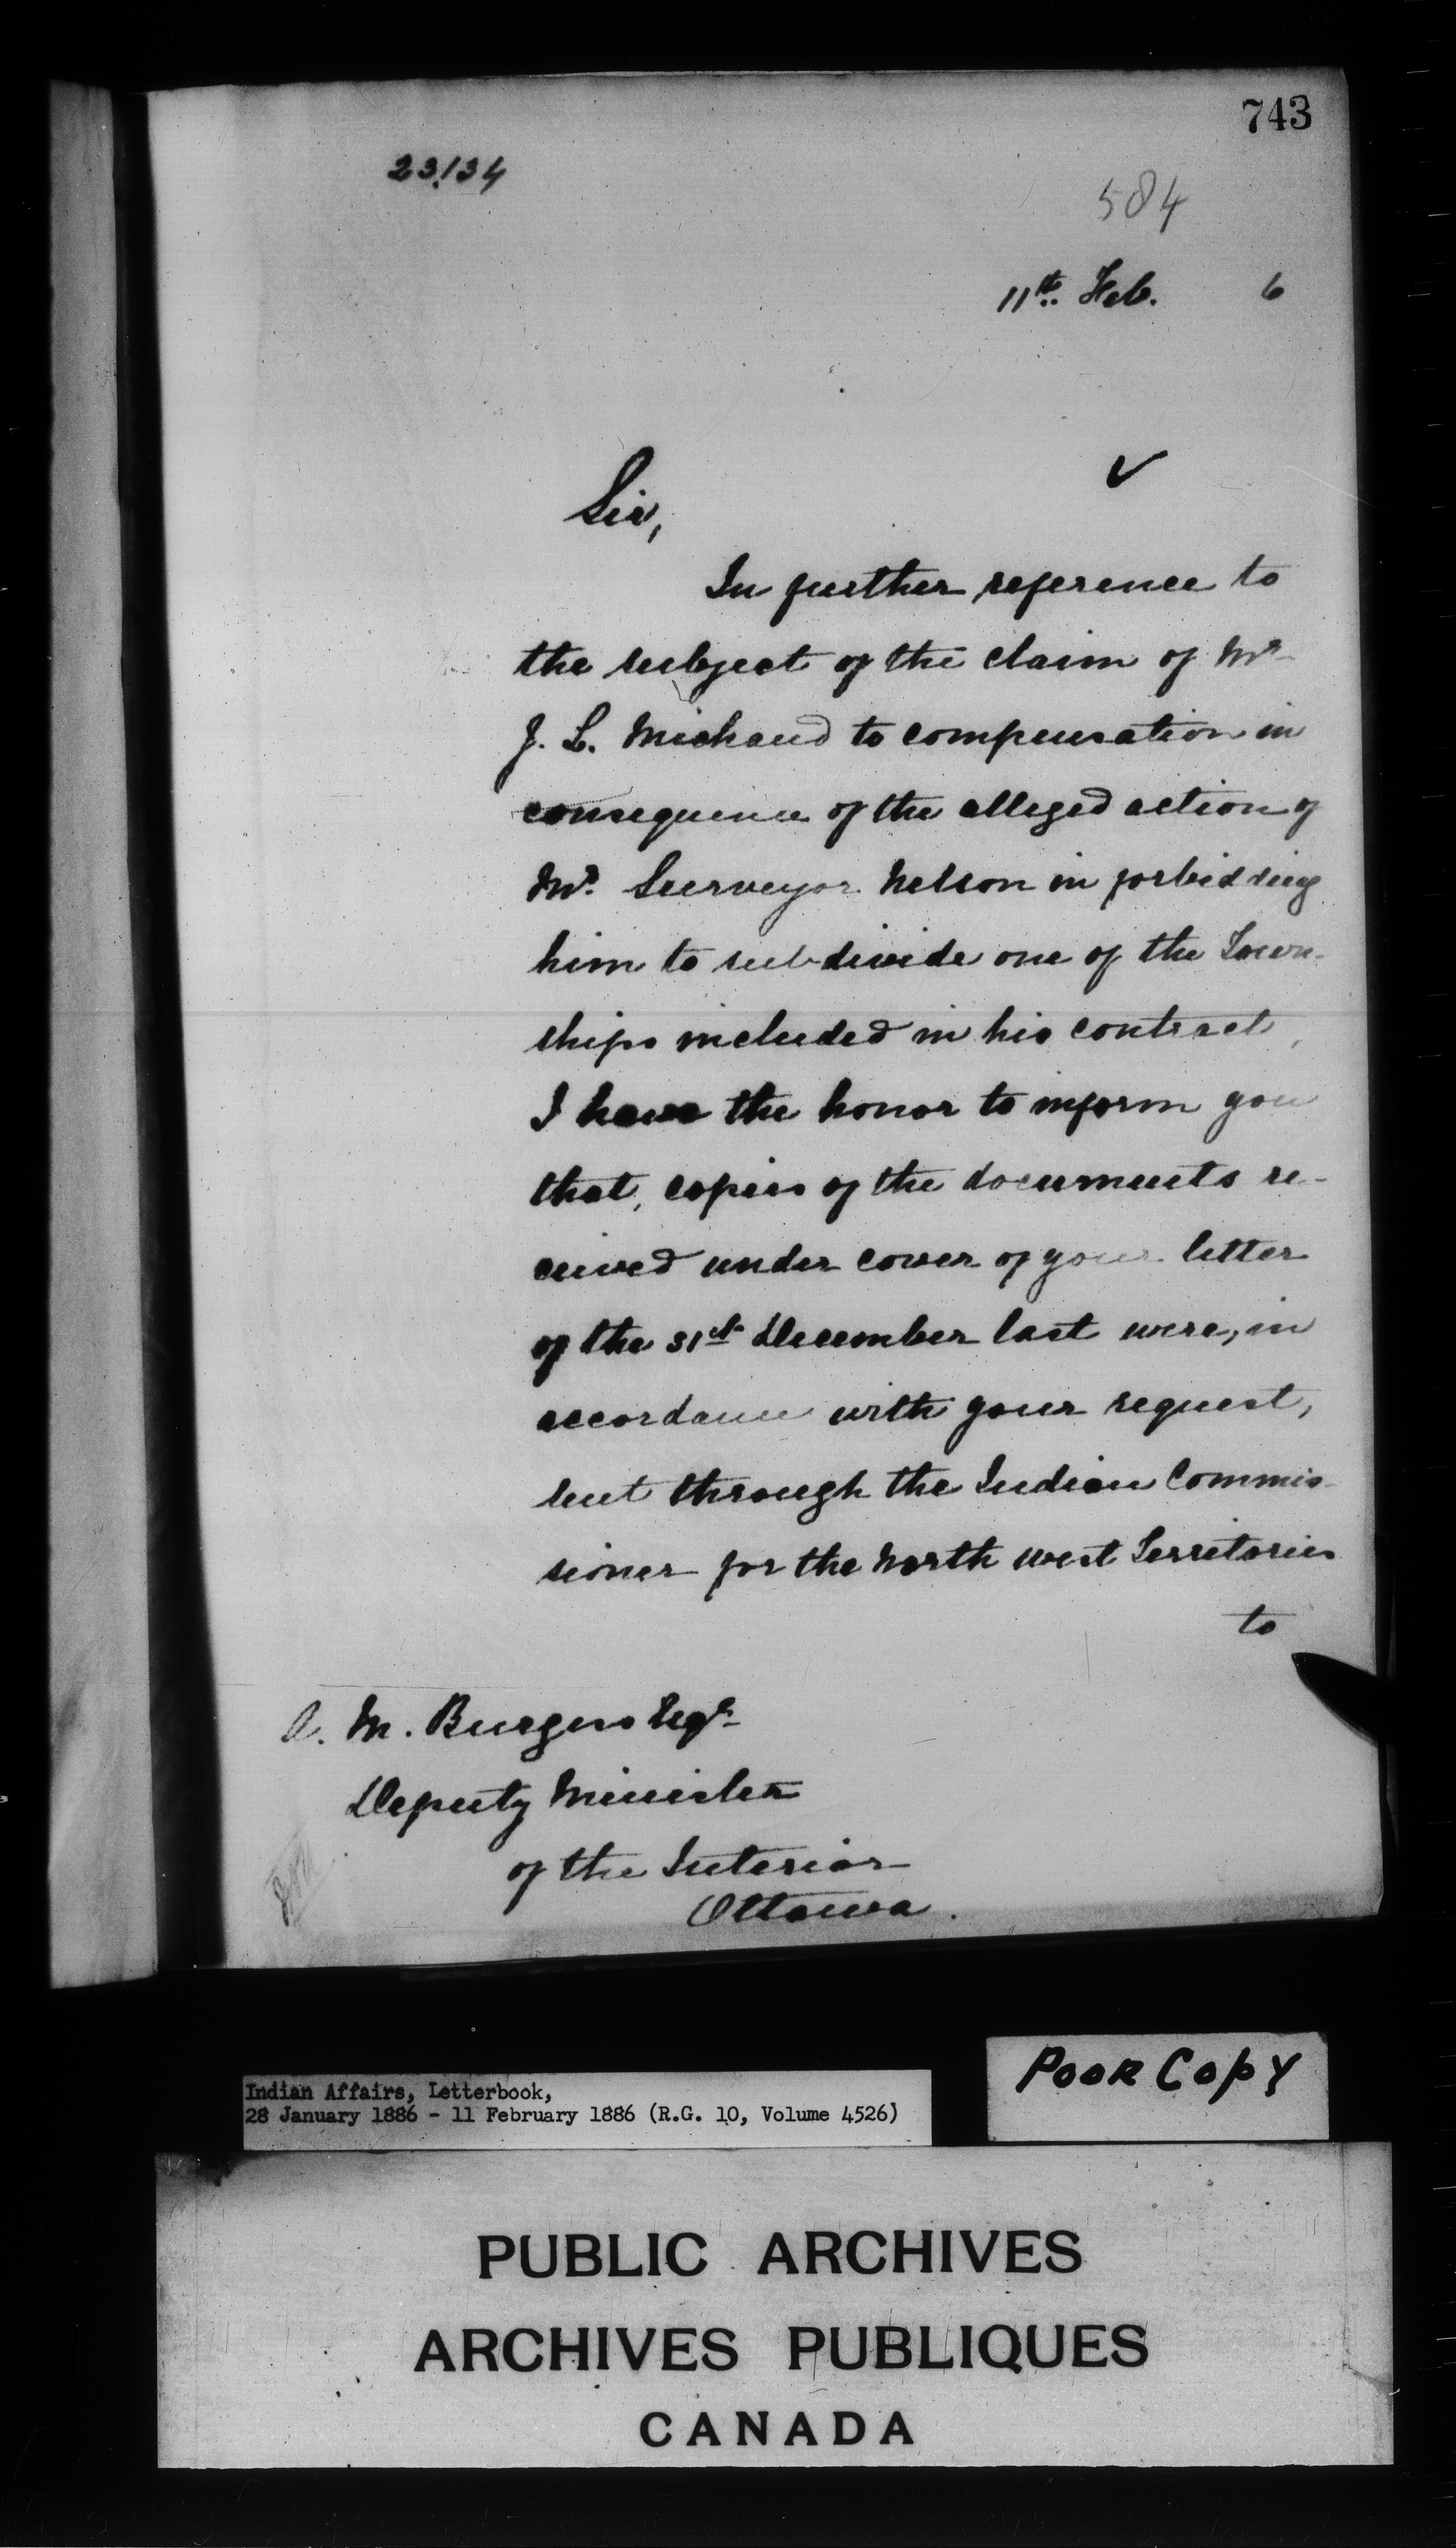 743
23,134
584
11th Feb. 6
Sir,
In further reference to
the subject of the claim of Mr
J. L. Michaud to compensation in
consequence of the alleged action of
Mr. Surveyor Nelson in forbidding
him to subdivide one of the Town-
ships included in his contract,
I have the honor to inform you
that, copies of the documents re-
ceived under cover of your letter
of the 31st December last were, in
accordance with your request,
sent through the Indian Commis-
sioner for the North West Territories
to
A. M. Burgess Esqr
Deputy Minister
of the Interior
Ottawa.
Indian Affairs, Letterbook,
28 January 1886 - 11 February 1886 (R.G. 10, Volume 4526)
POOR COPY
PUBLIC ARCHIVES
ARCHIVES PUBLIQUES
CANADA